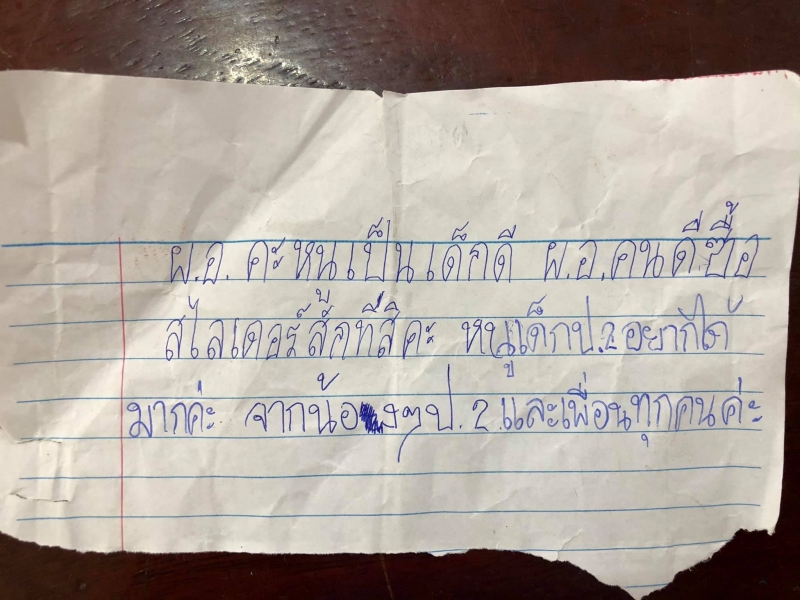 ผ.อ. คะหนูเป็นเด็กดี ผ.อ.คนดีซื้อ
สไลเดอร์สักที่สิคะ หนูเด็กป.2อยากได้
มากค่ะ จากน้องๆป.2.และเพื่อนทุกคนค่ะ